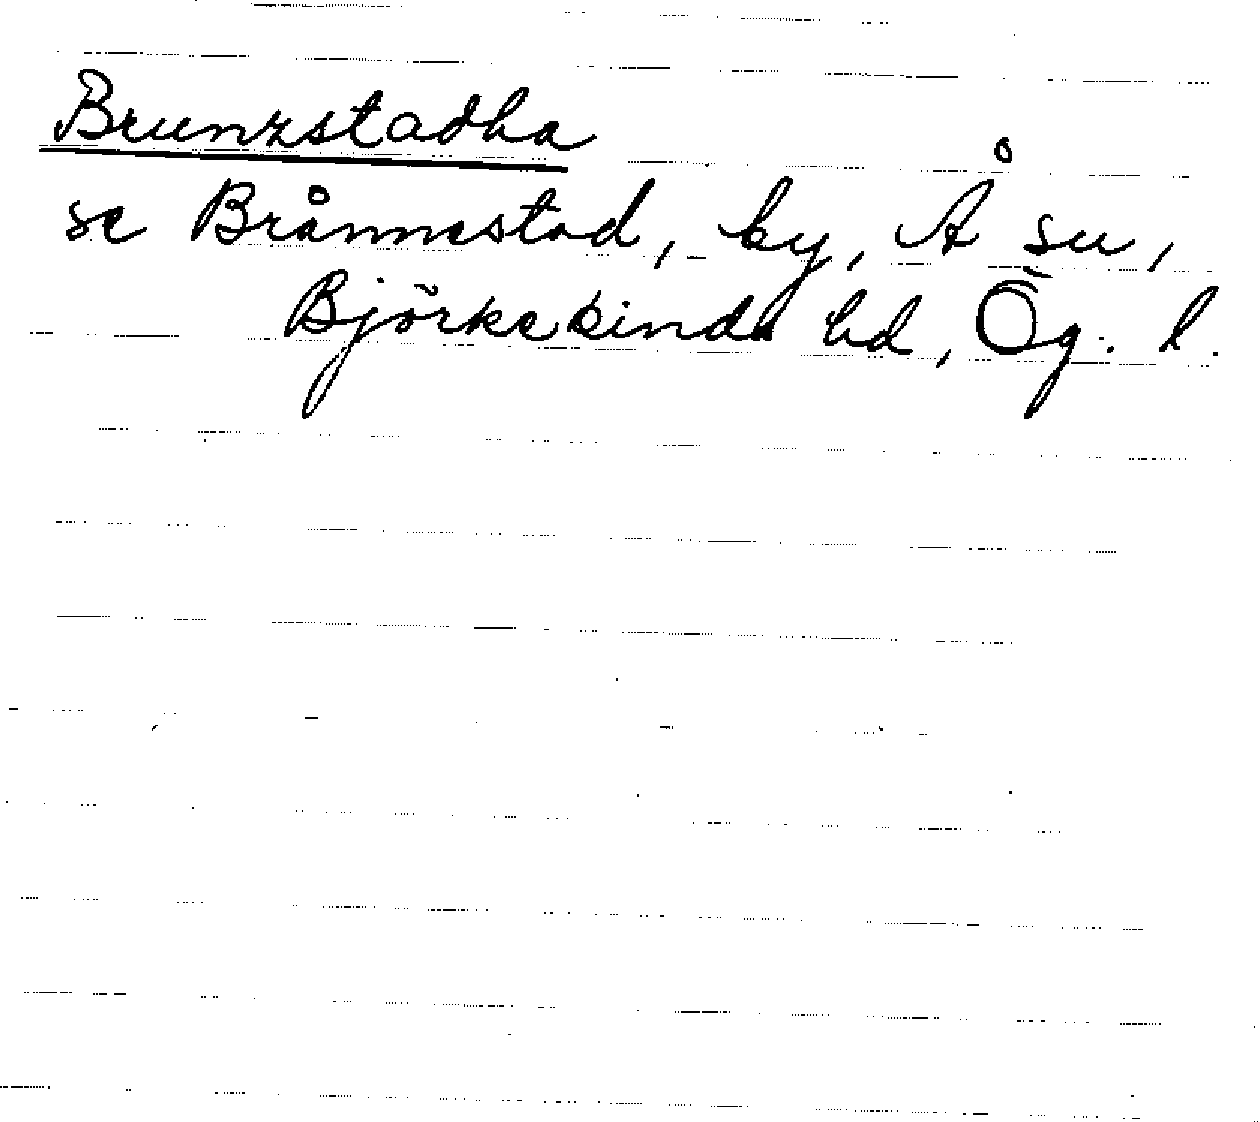 Brunzstadha
se Brånnestad, by, Å su,
Björkekinds hd, Ög. l.